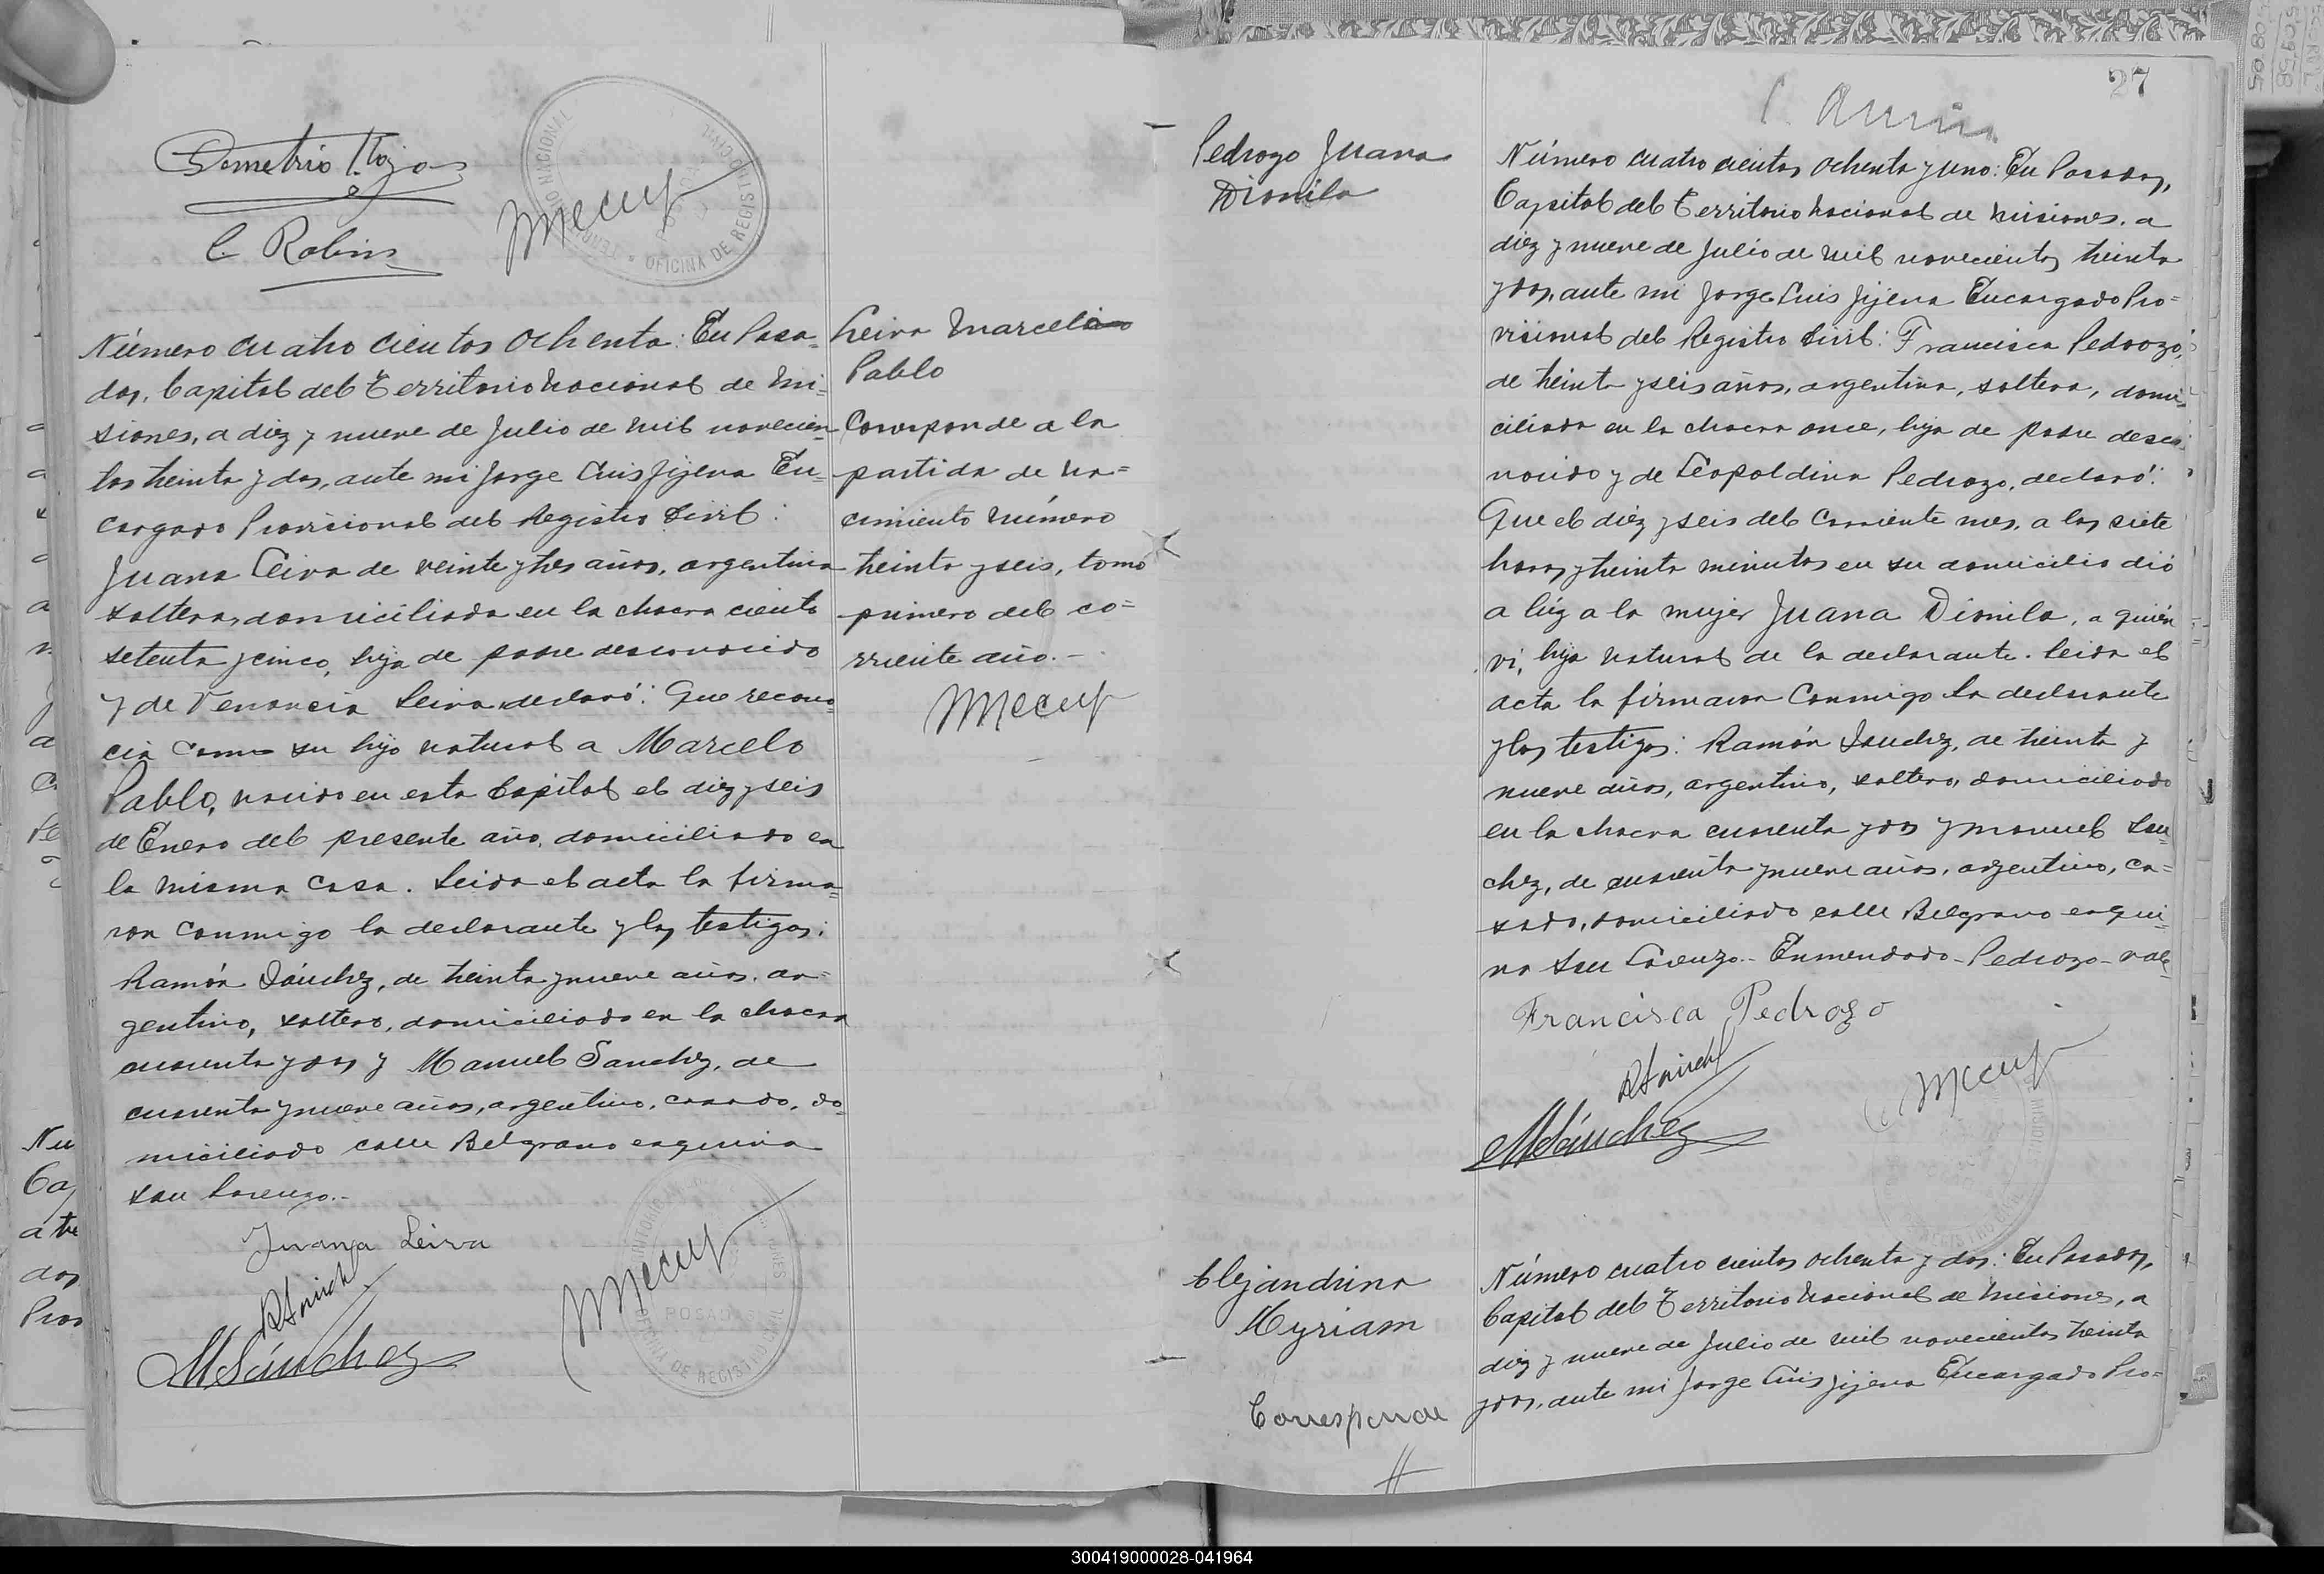 Demetrio Rojas
C. Robin
Número cuatro cientos ochenta: En Posa=
das, Capital del Territorio Nacional de Mi=
siones, a diez y nueve de Julio de mil novecien=
tos treinta y dos, ante mi Jorge Luis Jijena En=
cargado Provisional del Registro Civil:
Juana Leiva de veinte y tres años, argentina
soltera, domiciliada en la chacra ciento
setenta y cinco, hija de padre desconocido
y de Venancia Leiva, declaró: Que recono=
cia como su hijo natural a Marcelo
Pablo, nacido en esta Capital el diez y seis
de Enero del presente año, domiciliado en
la misma casa. Leida el acta la firma=
ron conmigo la declarante y los testigos:
Ramón Sánchez, de treinta y nueve años, ar=
gentino, soltero, domiciliado en la chacra
cuarenta y dos y Manuel Sanchez, de
cuarenta y nueve años, argentino, casado, do=
miciliado calle Belgrano esquina
San Lorenzo.-
Juana Leiva
RSánchez
MSánchez
OFICINA DE REGISTRO CIVIL
POSADAS
Leiva Marcelo
Pablo
Corresponde a la
partida de na=
cimiento número
treinta y seis, tomo
primero del co=
rriente año.-
27
Pedrozo Juana
Dionila
Número cuatro cientos ochenta y uno: En Posadas,
Capital del Territorio Nacional de Misiones, a
diez y nueve de Julio de mil novecientos treinta
y dos, ante mi Jorge Luis Jijena Encargado Pro=
visional del Registro Civil: Francisca Pedrozo,
de treinta y seis años, argentina, soltera, domi=
ciliada en la chacra once, hija de padre desco=
nocido y de Leopoldina Pedrozo, declaró:
Que el diez y seis del corriente mes, a las siete
horas y treinta minutos en su domicilio dió
a lúz a la mujer Juana Dionila, a quién
vi, hija natural de la declarante. Leida el
acta la firmaron conmigo la declarante
y los testigos: Ramón Sanchez, de treinta y
nueve años, argentino, soltero, domiciliado
en la chacra cuarenta y dos y Manuel San=
chez, de cuarenta y nueve años, argentino, ca=
sado, domiciliado calle Belgrano esqui=
na San Lorenzo.- Enmendado-Pedrozo-vale
Francisca Pedrozo
RSánchez
MSánchez
Alejandrina
Myriam
Corresponde
Número cuatro cientos ochenta y dos: En Posadas,
Capital del Territorio Nacional de Misiones, a
diez y nueve de Julio de mil novecientos treinta
y dos, ante mi Jorge Luis Jijena Encargado Pro=
300419000028-041964